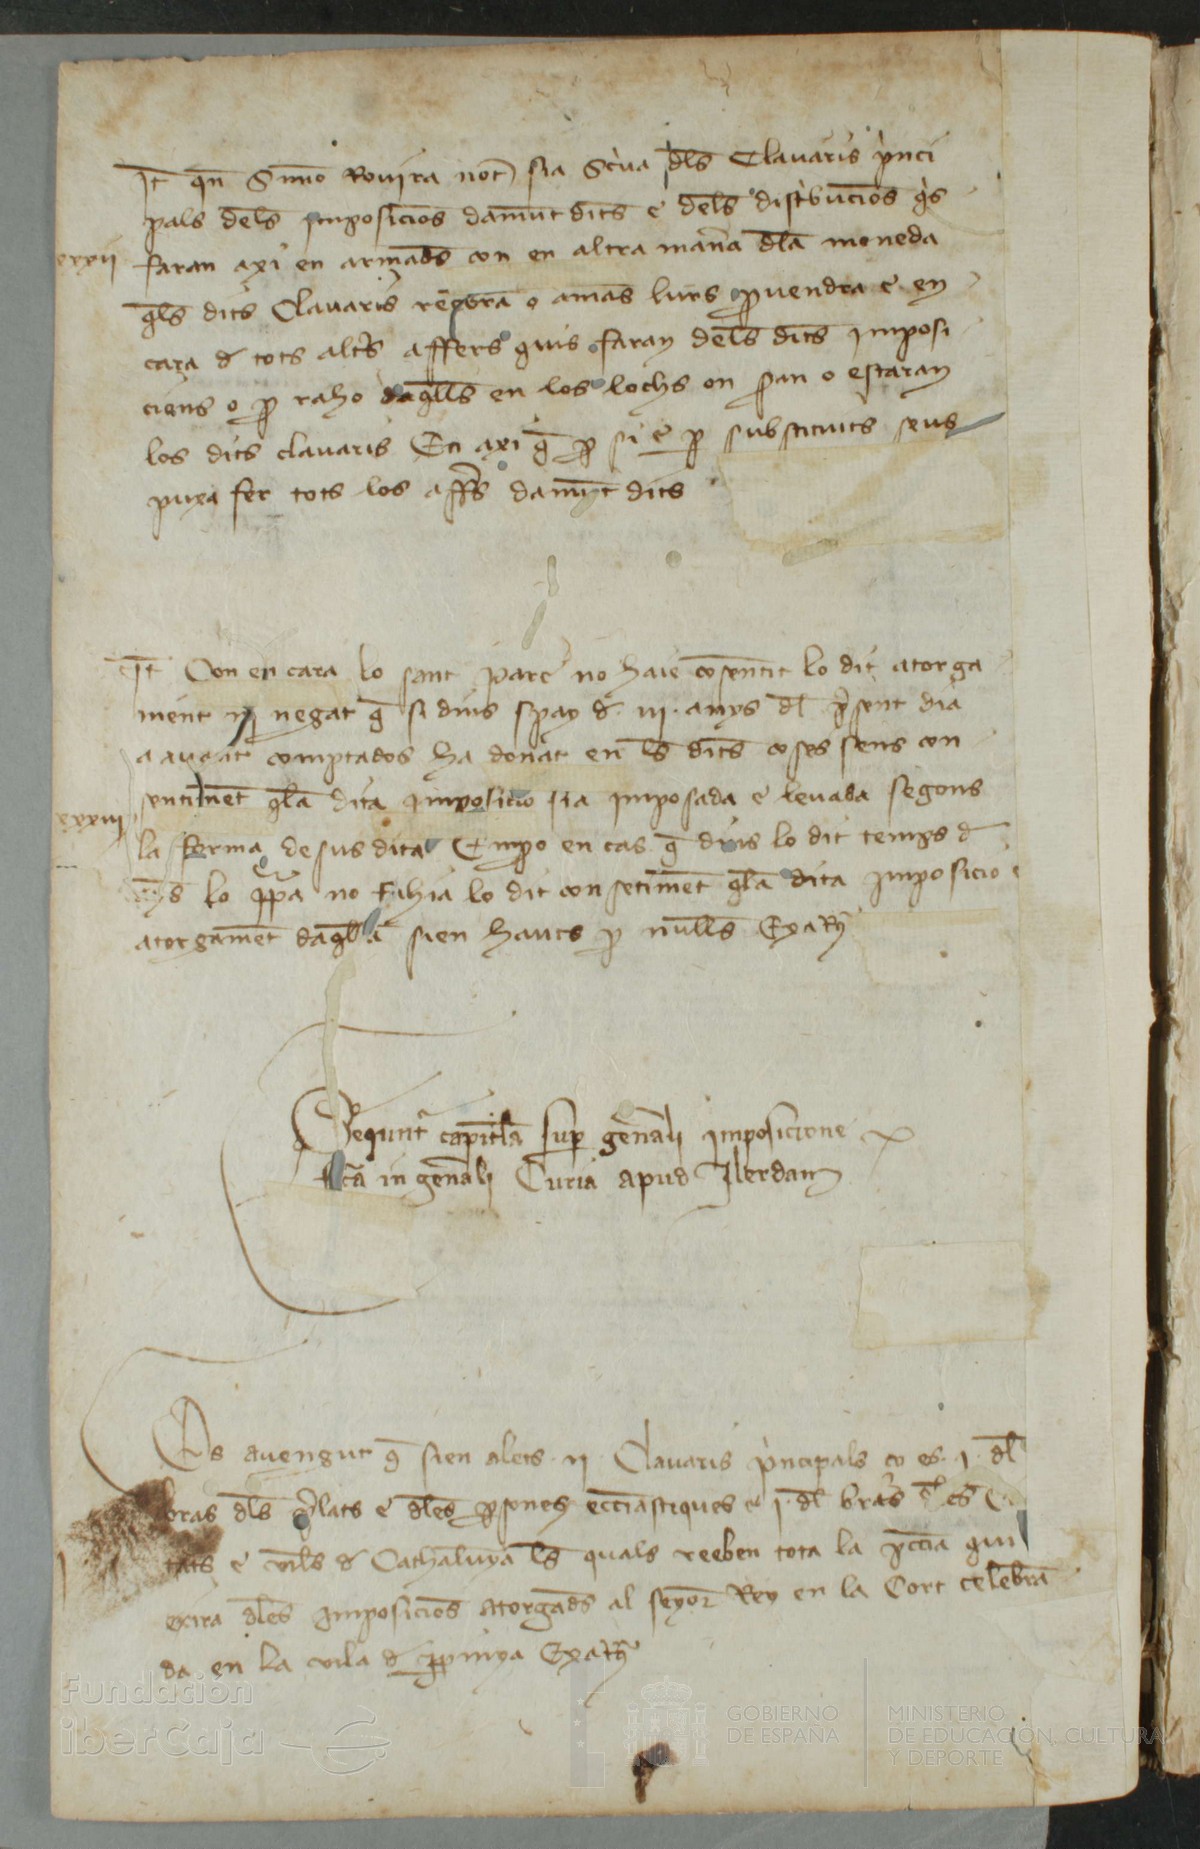 It qen Simo Rovira not sia scriva dels Clavaris princi
pals dels imposicions damunt dits e dels distribucions qs
xxxii
faran axi en armades con en altra manera dla moneda
qls dits Clavaris rebran o a mans lurs pvendra e en
cara d tots altrs affers quis faran dels dits imposi
cions o p raho daqlls en los lochs on seran o estaran
los dits clavaris En axi q p si e p substituits seus
puxa fer tots los affrs damunt dits
It Con encara lo sant pare no haie consentit lo dit atorga
ment ni negat q si dins spay d .iii. anys dl psent dia
a avant comptados ha donat en ls dits coses sens con
sentiment qla dita imposicio sia imposada e levada segons
xxxiii
la forma desus dita Empo en cas q dins lo dit temps d
lo papa no fahia lo dit consetiment qla dita imposicio e
atorgament daqlla sien hauts p nulls Exatr
Sequntr capitla sup genali imposicione
fca in genali Curia apud Ilerdam
Es avengut q sien alets .ii. Clavaris principals co es .i. dl
bras dls plats e dles psones eccliastiques e .i. dl bras d les Ci
tats e viles d Cathalunya ls quals reeben tota la peccunia qui
exira dles imposicions atorgades al senyor Rey en la Cort celebra
da en la vila d ppinya Exatr
Fundación
iberCaja
GOBIERNO
DE ESPAÑA
MINISTERIO
DE EDUCACIÓN, CULTURA
Y DEPORTE